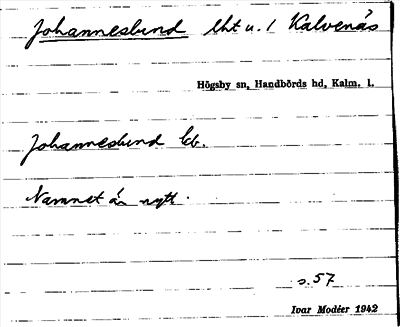 Johanneslund lht u. 1 Kalvenäs
Högsby sn, Handbörds hd, Kalm. l.
Johanneslund lb.
Namnet är nytt.
s. 57
Ivar Modéer 1942